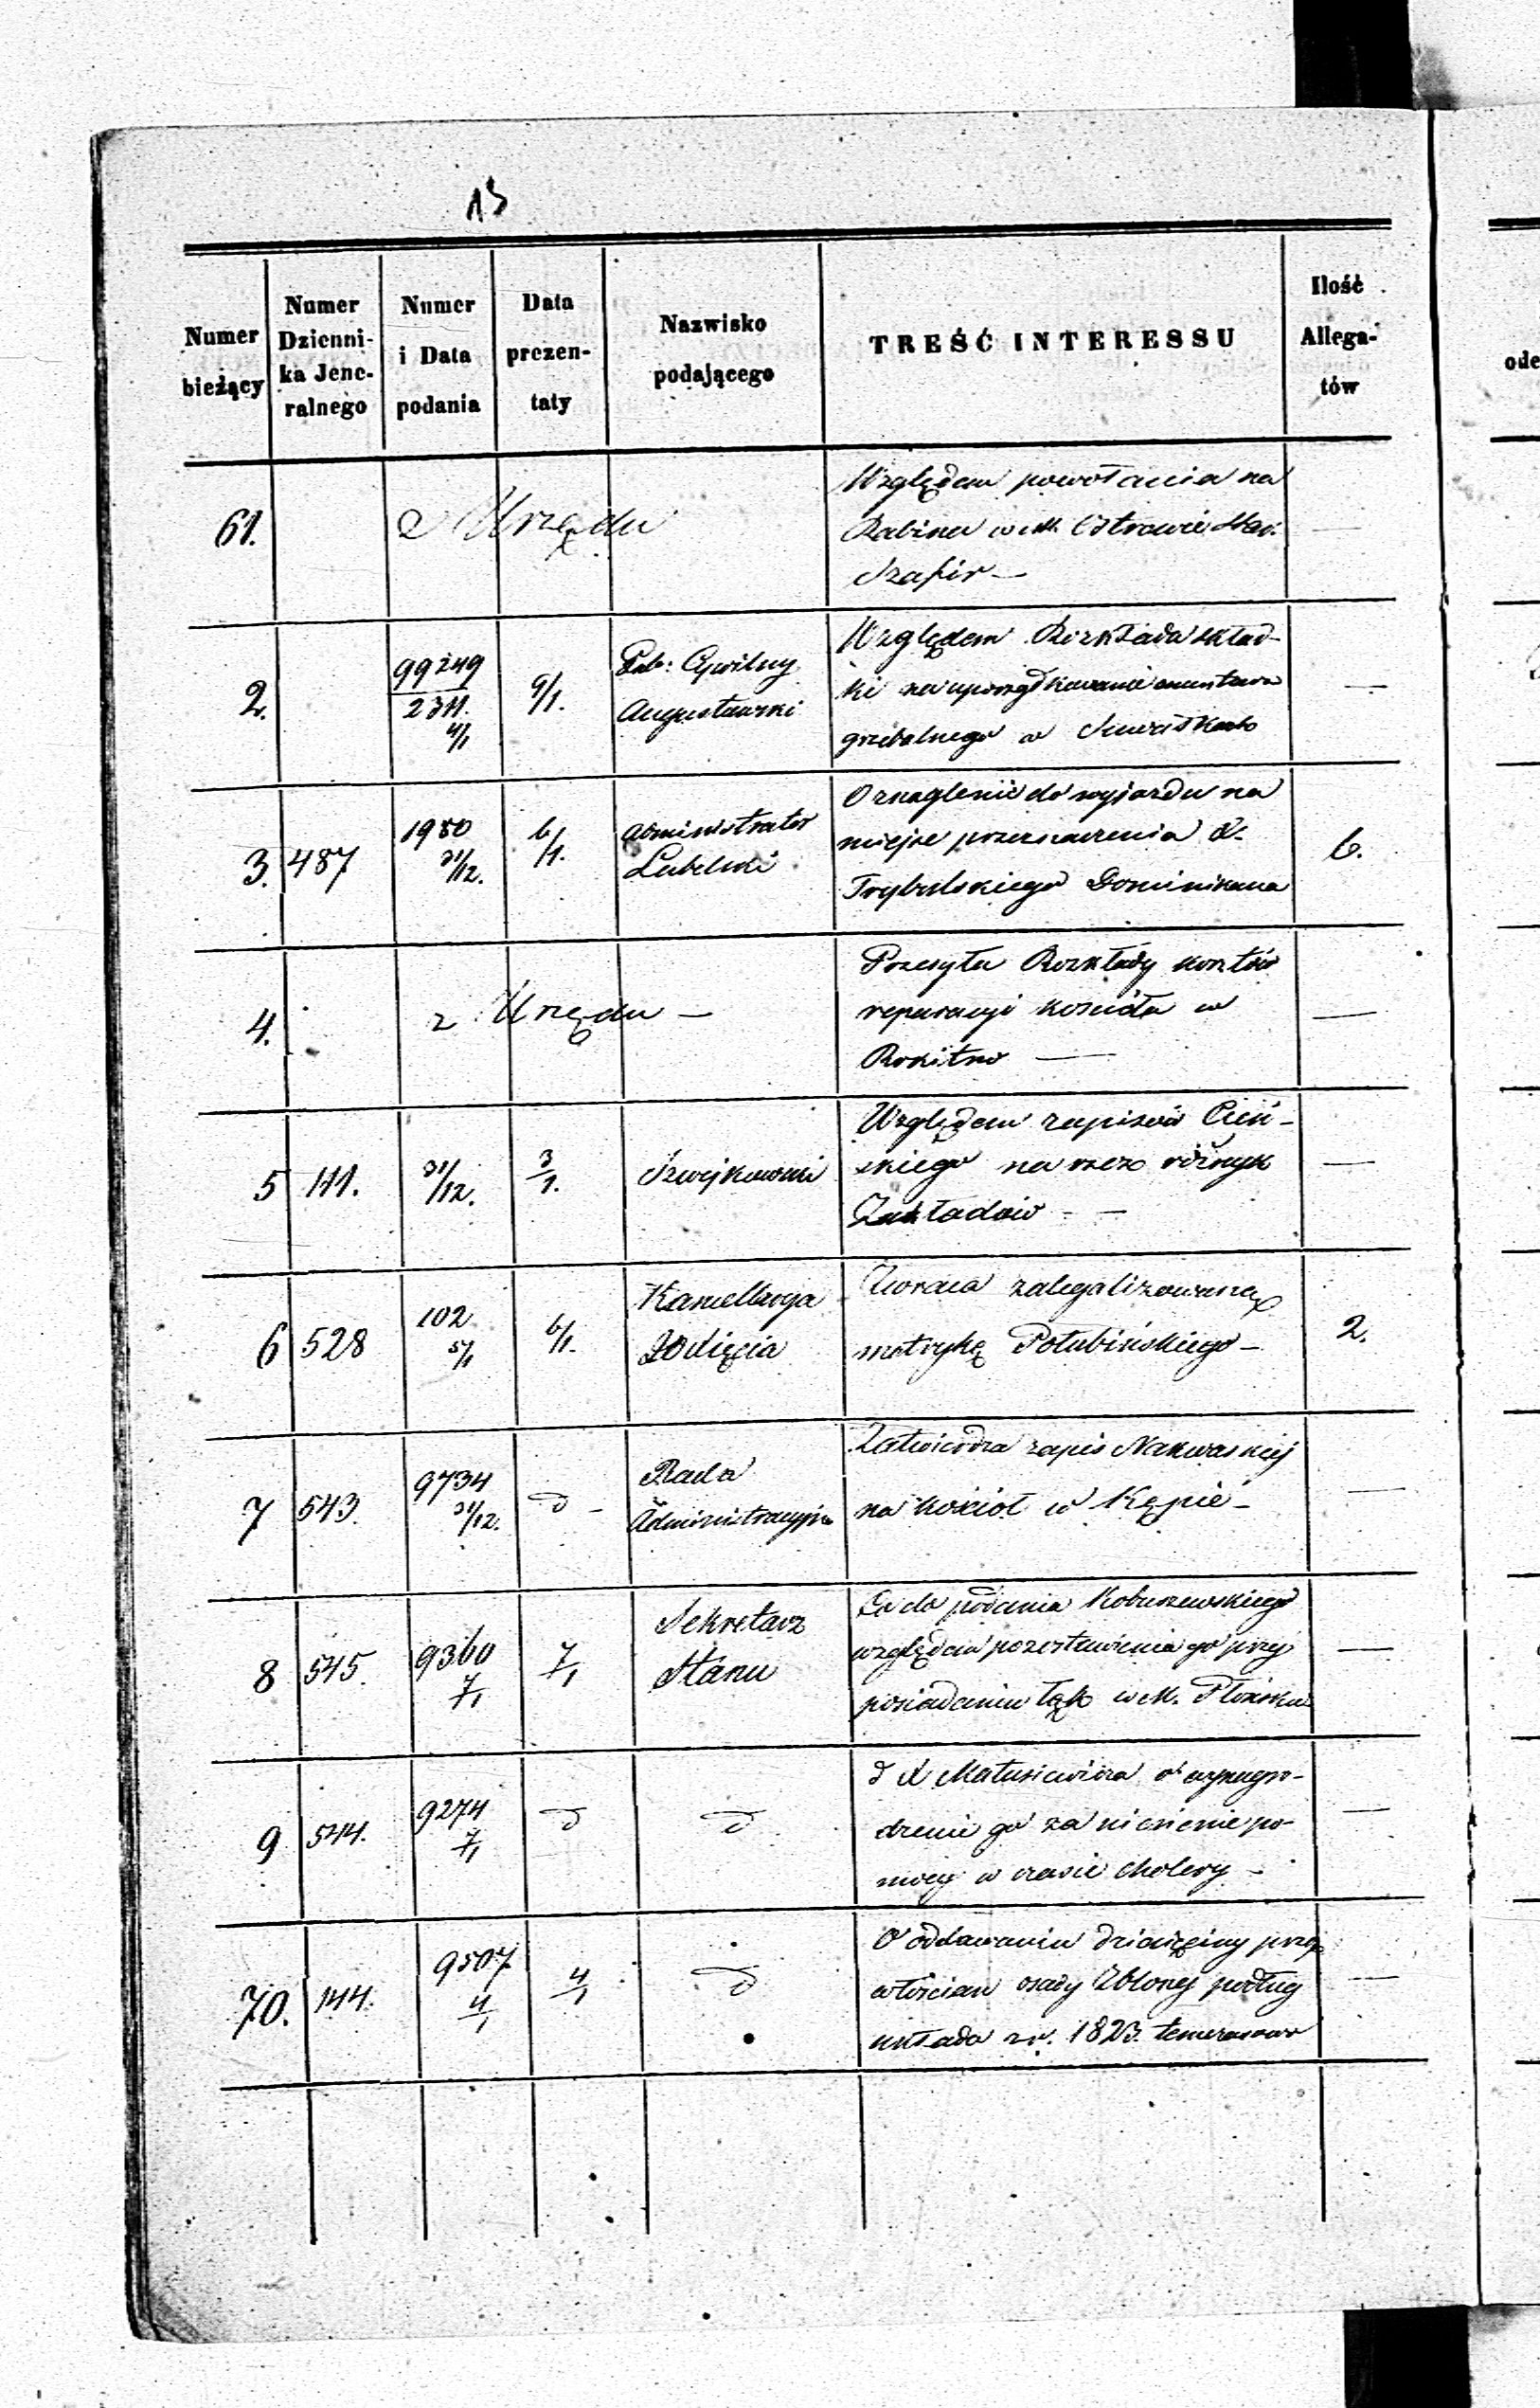 13
Numer bieżący
Numer Dzienni-ka Jene-ralnego
Numer i Data podania
Data prezen-taty
Nazwisko podającego
TREŚĆ INTERESSU
Ilość Allega-tów
ode
61. z Urzędu
Względem powołania na
Rabina w M. Ostrowie
Szafir —
2. 99249 2311. 4/1 9/1. Gub: Cywilny Augustowski
Względem Rozkładu skład-
ki na uporządkowanie cmentarza
grzebalnego w Suwałkach —
3. 487 1980 31/12. 6/1. Administrator Lubelski
O znaglenie do wyjazdu na
miejsce przeznaczenia X.
Trybulskiego Dominikana 6.
4. z Urzędu —
Przesyła Rozkłady kosztów
reparacyi kościoła w
Rokitno — —
5 111. 31/12. 3/1. Szwejkowski
Względem zapisów Cień-
skiego na rzecz różnych
Zakładów — — —
6 528 102 5/1 6/1. Kancellarya Xięcia
Zwraca zalegalizowaną
metrykę Połubińskiego — 2.
7 543. 9734 31/12. d — Rada Administracyjna
Zatwierdza zapis Nakwaskiej
na kościół w Kępie — —
8 545. 9360 7/1 7/1 Sekretarz Stanu
Co do podania Kobuszewskiego
względem pozostawienia go przy
posiadaniu łąk w M. Płońsku —
9 544. 9274 7/1 d d
d X Matusiewicza o wynagro-
dzenie go za niesienie po-
mocy w czasie cholery — —
70. 144. 9507 4/1 4/1 d
O oddawaniu dziesięciny przez
włościan osady podług
układu z r. 1823. —